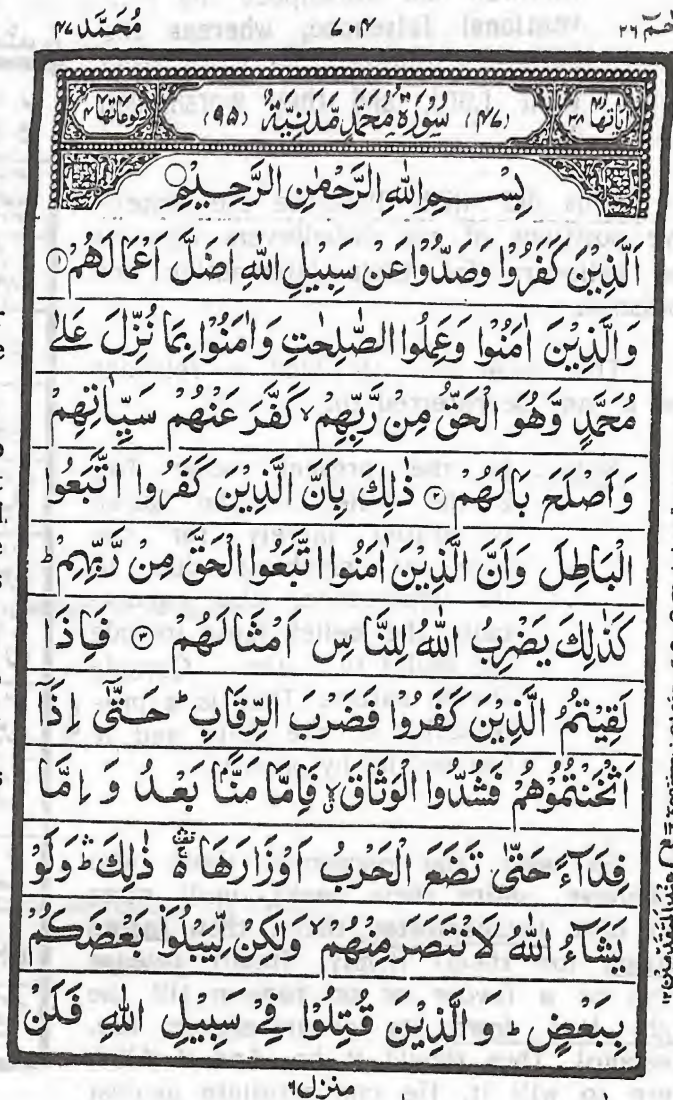 حٰمٓ ٢٦ ٧٠٤ مُحَمَّد ٤٧
اٰيَاتُهَا ٣٨ (٤٧) سُوْرَةُ مُحَمَّدٍ مَدَنِيَّةٌ (٩٥) رُكُوْعَاتُهَا ٤
بِسْمِ اللهِ الرَّحْمٰنِ الرَّحِيْمِ
اَلَّذِيْنَ كَفَرُوْا وَصَدُّوْا عَنْ سَبِيْلِ اللهِ اَضَلَّ اَعْمَالَهُمْ ١
وَالَّذِيْنَ اٰمَنُوْا وَعَمِلُوا الصّٰلِحٰتِ وَاٰمَنُوْا بِمَا نُزِّلَ عَلٰى
مُحَمَّدٍ وَّهُوَ الْحَقُّ مِنْ رَّبِّهِمْ ۙ كَفَّرَ عَنْهُمْ سَيِّاٰتِهِمْ
وَاَصْلَحَ بَالَهُمْ ٢ ذٰلِكَ بِاَنَّ الَّذِيْنَ كَفَرُوا اتَّبَعُوا
الْبَاطِلَ وَاَنَّ الَّذِيْنَ اٰمَنُوا اتَّبَعُوا الْحَقَّ مِنْ رَّبِّهِمْ ؕ
كَذٰلِكَ يَضْرِبُ اللهُ لِلنَّاسِ اَمْثَالَهُمْ ٣ فَاِذَا
لَقِيْتُمُ الَّذِيْنَ كَفَرُوْا فَضَرْبَ الرِّقَابِ ؕ حَتّٰۤى اِذَاۤ
اَثْخَنْتُمُوْهُمْ فَشُدُّوا الْوَثَاقَ ۙ فَاِمَّا مَنًّۢا بَعْدُ وَ اِمَّا
فِدَآءً حَتّٰى تَضَعَ الْحَرْبُ اَوْزَارَهَا ۛ۬ ذٰلِكَ ؕۛ وَلَوْ
يَشَآءُ اللهُ لَانْتَصَرَ مِنْهُمْ ۙ وَلٰكِنْ لِّيَبْلُوَا۟ بَعْضَكُمْ
بِبَعْضٍ ؕ وَالَّذِيْنَ قُتِلُوْا فِيْ سَبِيْلِ اللهِ فَلَنْ
منزل ٦